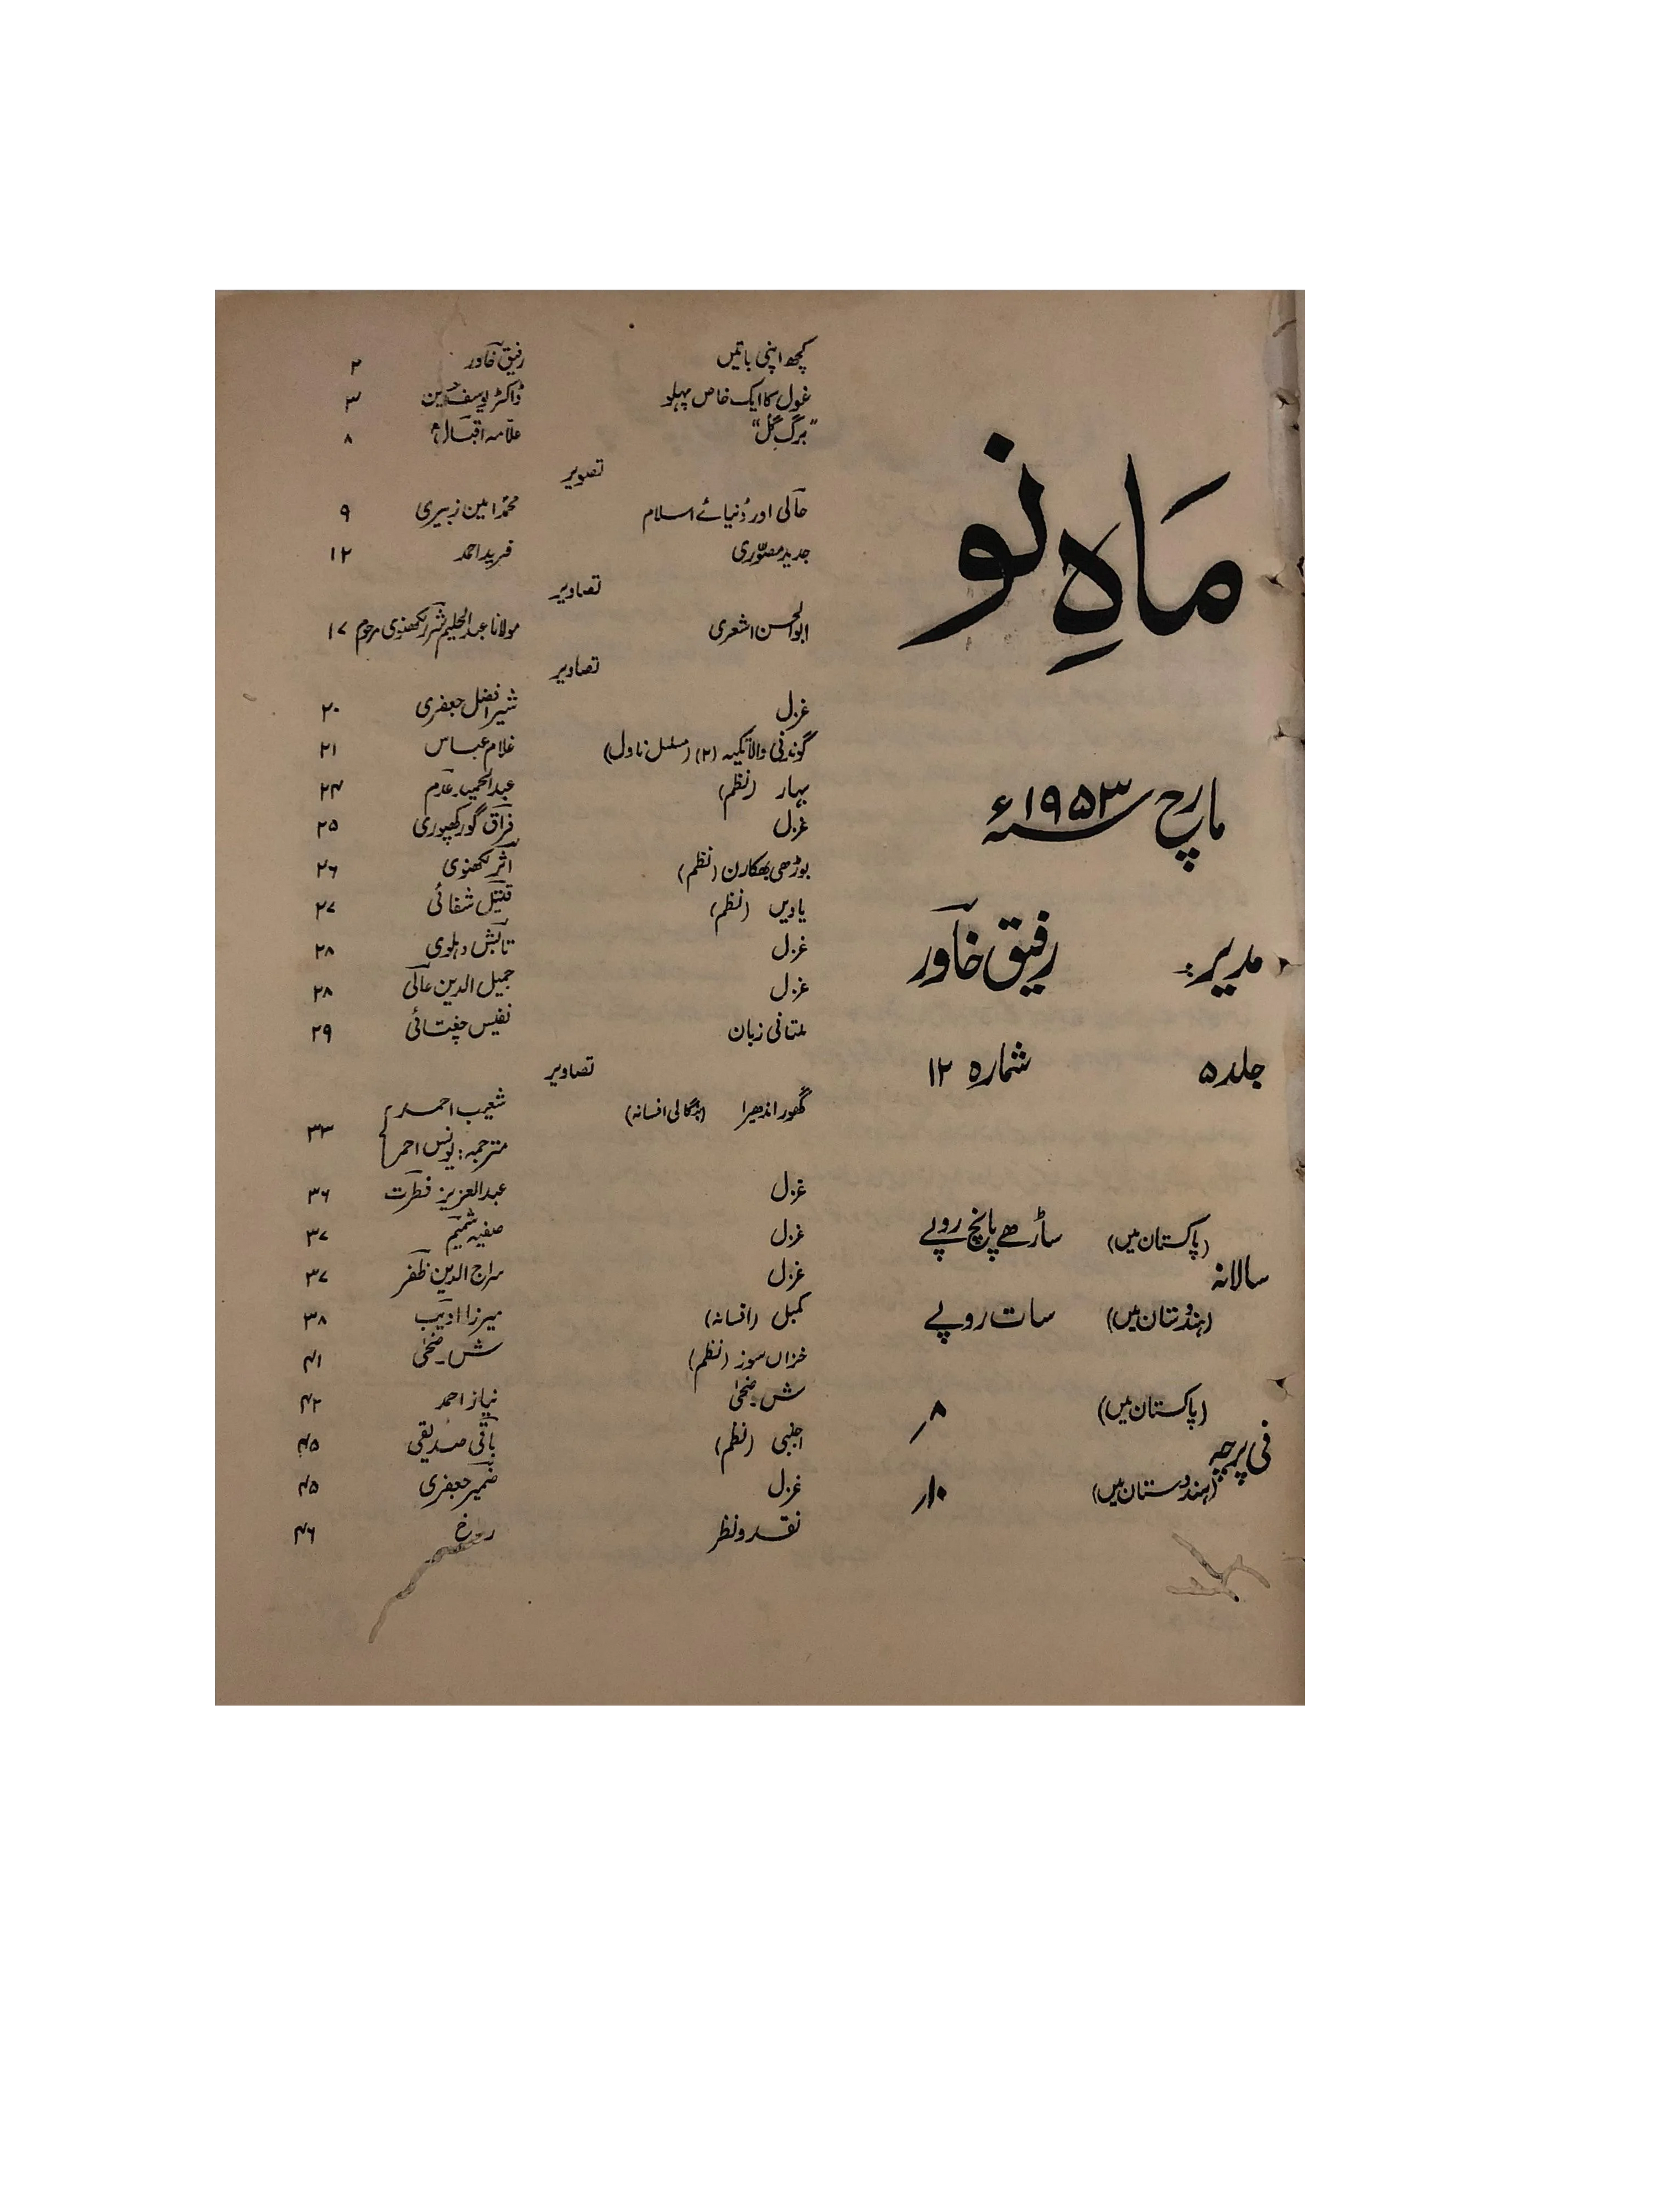 ماہِ نو
مارچ ۱۹۵۳ء
مدیر: رفیق خاور
جلد ۵ شمارہ ۱۲
سالانہ
(پاکستان میں) ساڑھے پانچ روپے
(ہندُستان میں) سات روپے
فی پرچہ
(پاکستان میں) ۸ر
(ہندوستان میں) ۱۰ر
کچھ اپنی باتیں رفیق خاور ۲
غزل کا ایک خاص پہلو ڈاکٹر یوسف حسین ۳
"برگِ گل" علّامہ اقبالؒ ۸
تصویر
حالی اور دُنیائے اسلام محمد امین زبیری ۹
جدید مصوّری فرید احمد ۱۲
تصاویر
ابوالحسن اشعری مولانا عبدالحلیم شرر لکھنوی مرحوم ۱۷
تصاویر
غزل شیر افضل جعفری ۲۰
گوندنی والا تکیہ (۲) (مسلسل ناول) غلام عباس ۲۱
بہار (نظم) عبدالحمید عدم ۲۴
غزل فراق گورکھپوری ۲۵
بوڑھی بھکارن (نظم) اثر لکھنوی ۲۶
یادیں (نظم) قتیل شفائی ۲۷
غزل تابش دہلوی ۲۸
غزل جمیل الدین عالی ۲۸
ملتانی زبان نفیس چغتائی ۲۹
تصاویر
گھور اندھیرا (بنگالی افسانہ) شعیب احمد
مترجمہ: یونس احمر ۳۳
غزل عبدالعزیز فطرت ۳۶
غزل صفیہ شمیم ۳۷
غزل سراج الدین ظفر ۳۷
کمبل (افسانہ) میرزا ادیب ۳۸
خزاں سوز (نظم) ش۔ضحیٰ ۴۱
ش۔ضحیٰ نیاز احمد ۴۲
اجنبی (نظم) باقی صدیقی ۴۵
غزل ضمیر جعفری ۴۵
نقد و نظر ر۔خ ۴۶